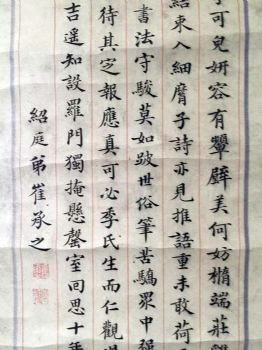 可皃妍容有顰璧美何妨橢端莊雜
結束入細麼子詩亦見推語重未敢荷
書法守駿莫如跛世俗筆苦驕眾中強
待其定報應真可必季氏生而仁觀過
吉遥知設羅門獨掩懸罄室回思十年
紹庭弟崔承之